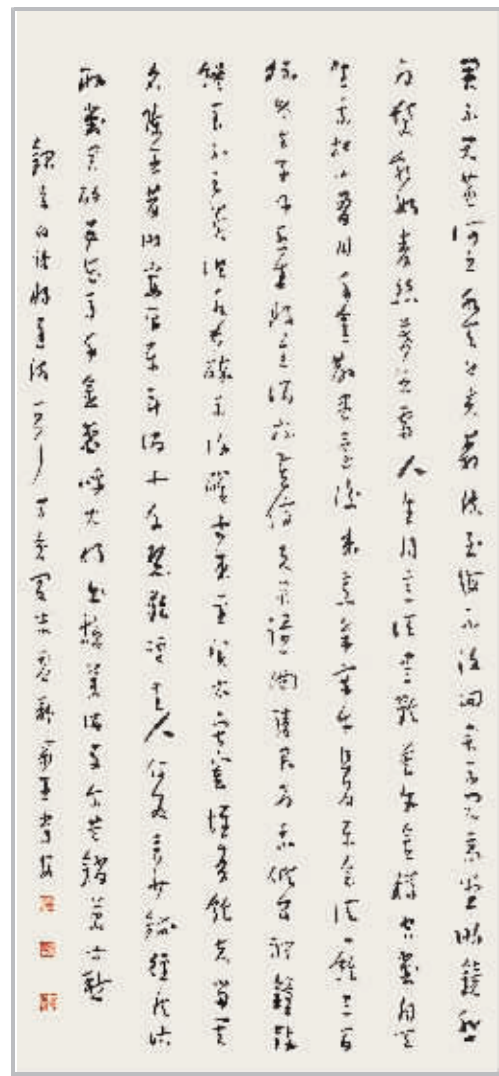 君不見黄河之水天上来奔流到海不復回君不見高堂明鏡悲
白髮朝如青絲暮成雪人生得意須盡歡莫使金樽空對月天
生我材必有用千金散盡還復来烹羊宰牛且為樂會須一飲三百
杯岑夫子丹丘生將進酒杯莫停與君歌一曲請君為我傾耳聽鐘鼓
饌玉不足貴但願長醉不復醒古来聖賢皆寂寞惟有飲者留其
名陳王昔時宴平樂斗酒十千恣歡謔主人何為言少錢徑須沽
取對君酌五花馬千金裘呼兒將出換美酒與爾同銷萬古愁
録李白詩將進酒一首丁亥